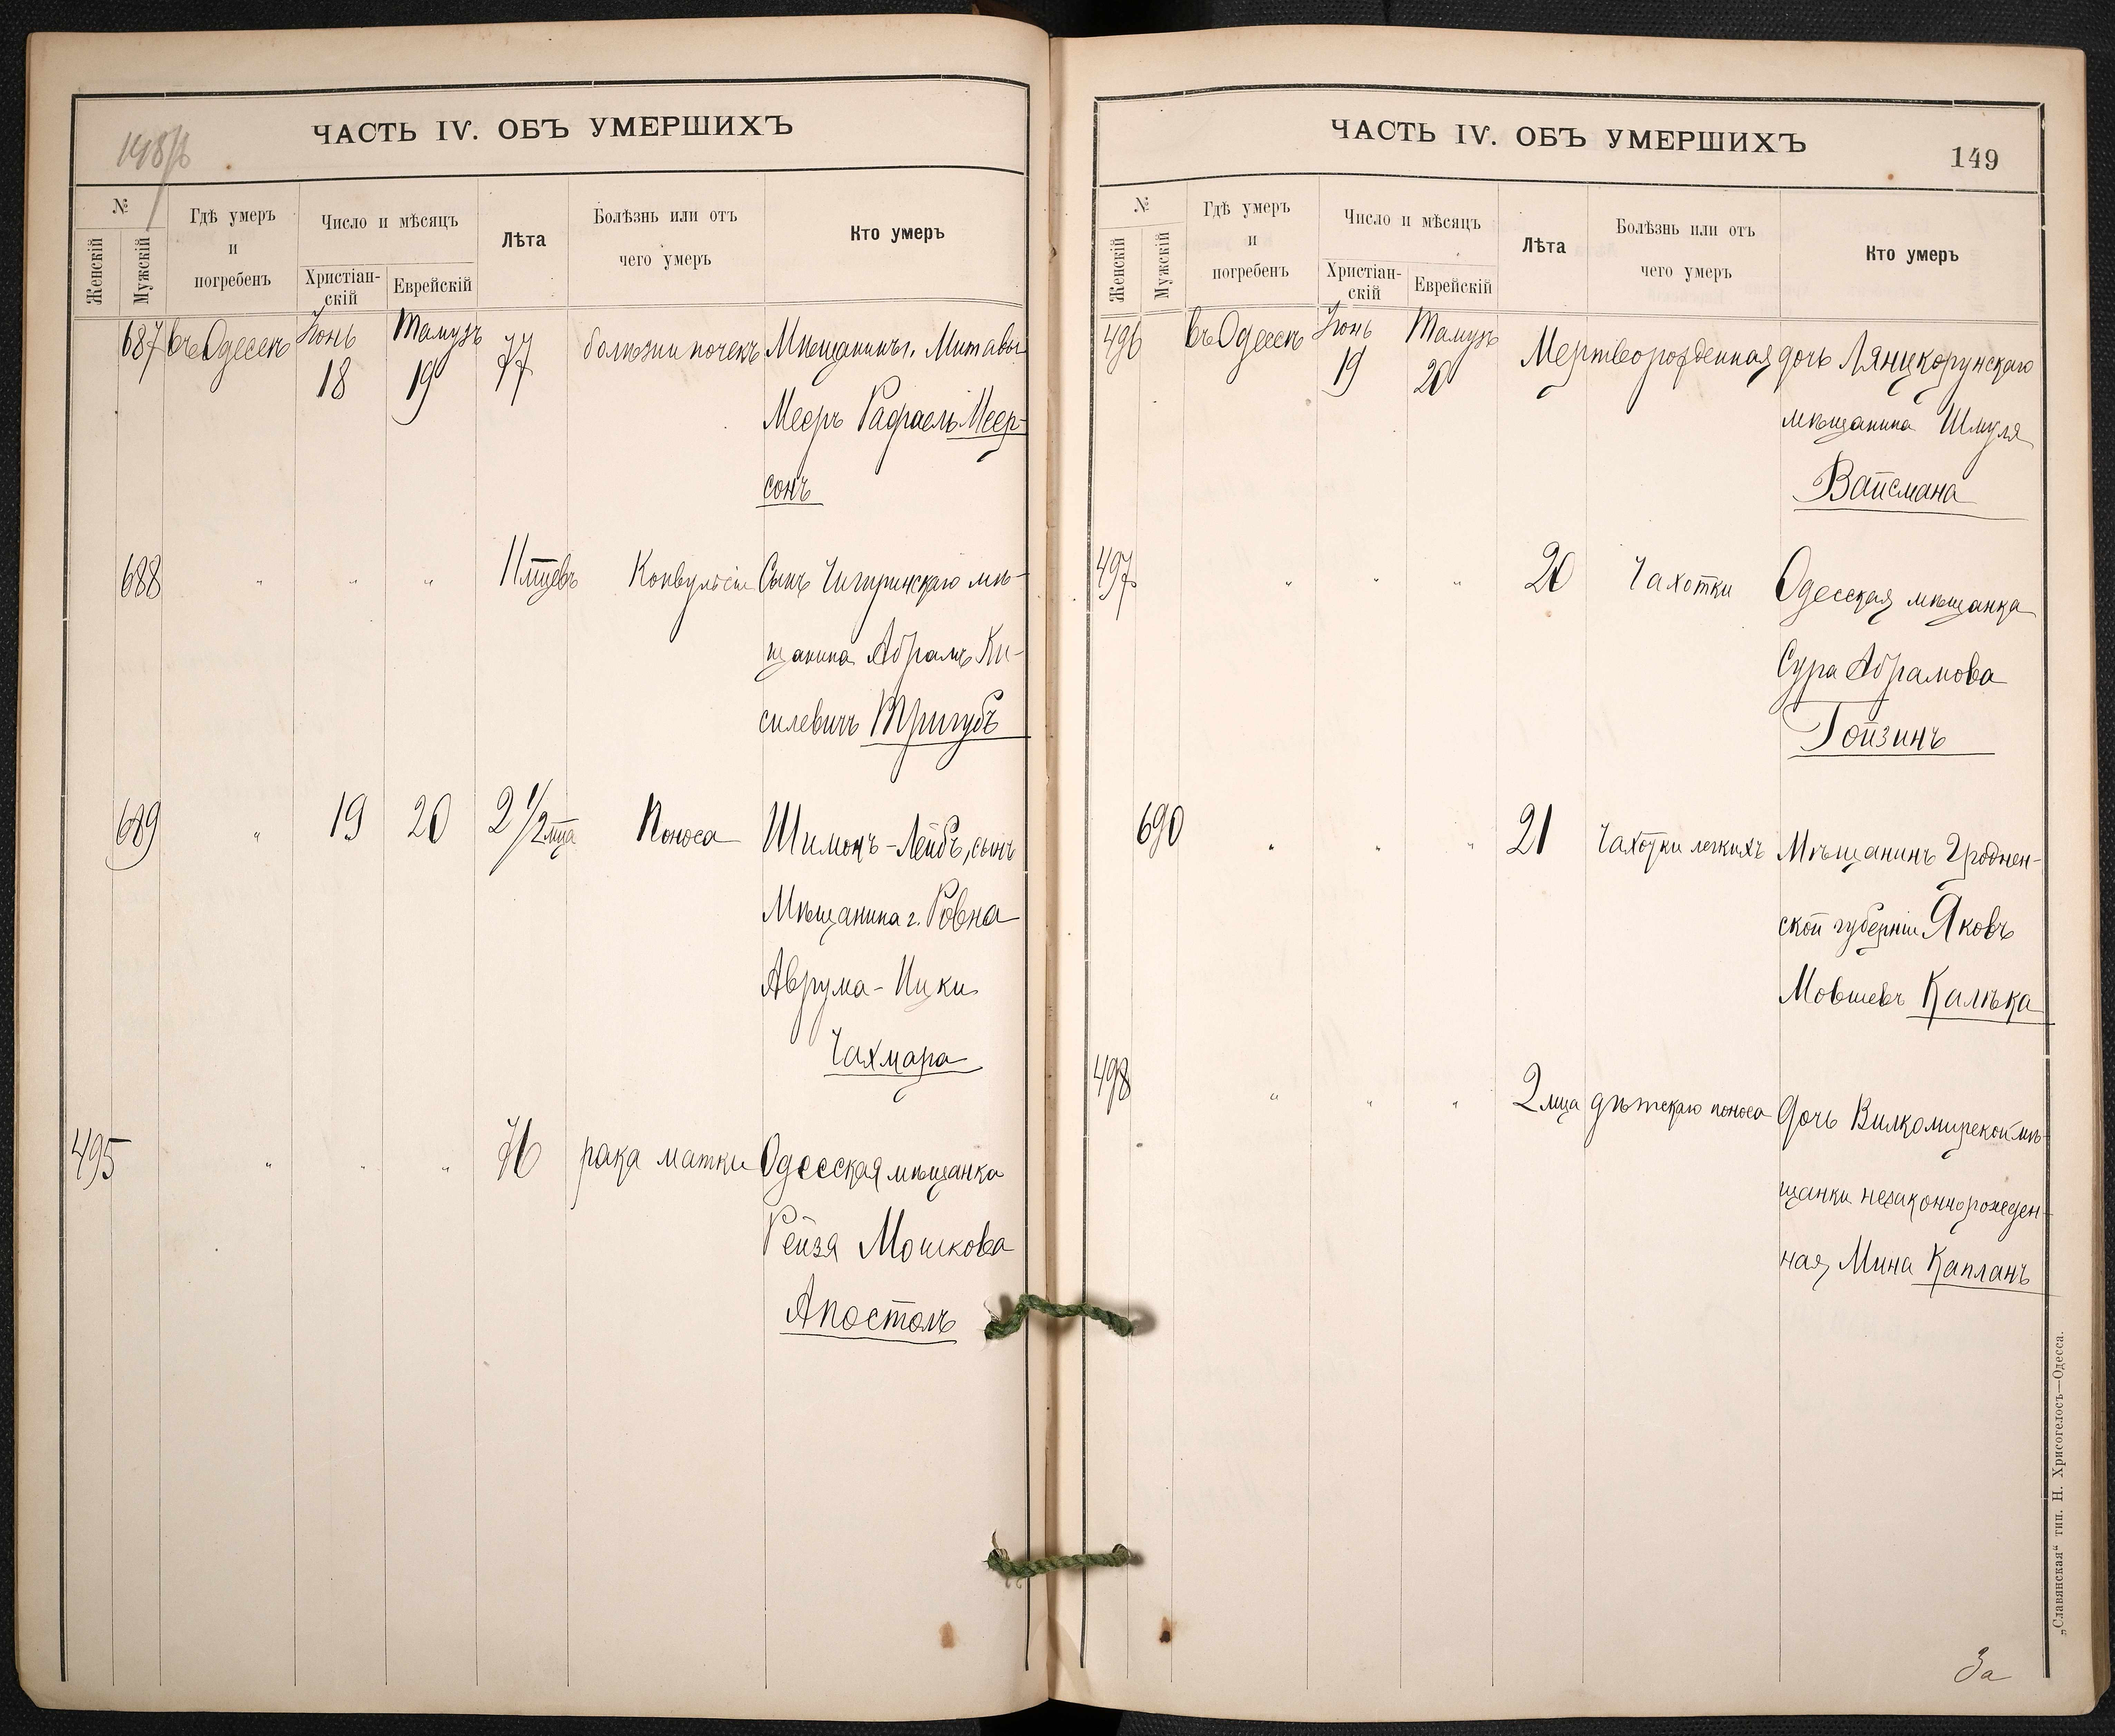 148/б
ЧАСТЬ IV. ОБЪ УМЕРШИХЪ
№
Женскій
Мужскій
Гдѣ умеръ
и
погребенъ
Число и мѣсяцъ
Христіан-
скій
Еврейскій
Лѣта
Болѣзнь или отъ
чего умеръ
Кто умеръ
687 въ Одессѣ Іюнь Тамузъ 77 болѣзни почекъ Мѣщанинъ г. Митавы
18 19 Мееръ Рафаелъ Меер-
сонъ
688 " " " 11 мѣцевъ Конвульсіи Сынъ Чигиринскаго мѣ-
щанина Абрамъ Ки-
силевичъ Тригубъ
689 " 19 20 2 1/2 мца Поноса Шимонъ-Лейбъ, сынъ
Мѣщанина г. Ровна
Аврума-Ицки
Чахмара
495 " " " 76 рака матки Одесская мѣщанка
Рейзя Мошкова
Апостолъ
ЧАСТЬ IV. ОБЪ УМЕРШИХЪ
149
№
Женскій
Мужскій
Гдѣ умеръ
и
погребенъ
Число и мѣсяцъ
Христіан-
скій
Еврейскій
Лѣта
Болѣзнь или отъ
чего умеръ
Кто умеръ
496 въ Одессѣ Іюнь Тамузъ Мертворожденная дочь Лянцкорунскаго
19 20 мѣщанина Шмуля
Вайсмана
497 " " " 20 Чахотки Одесская мѣщанка
Сура Абрамова
Гойзинъ
690 " " " 21 Чахотки легкихъ Мѣщанинъ Гроднен-
ской губерніи Яковъ
Мовшевъ Калѣка
498 " " " 2 мца дѣтскаго поноса Дочь Вилкомирской мѣ-
щанки незаконнорожден-
ная Мина Капланъ
„Славянская“ тип. Н. Хрисогелосъ—Одесса.
За